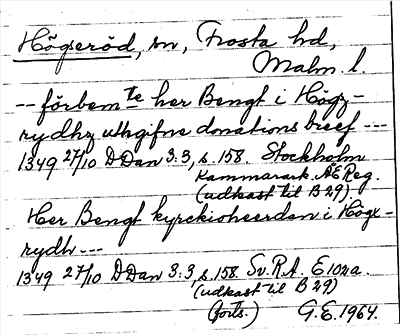 Högseröd, sn, Frosta hd,
Malm. l.
-- förbem te her Bengt i Högz-
rydhz uthgifne donations breef ---
1349 27/10 DDan 3:3, s. 158. Stockholm
Kammarark. ÄEReg.
(udkast til B 29).
Her Bengt kyrckioheerdan i Högx-
rydh ---
1349 27/10 DDan 3:3, s. 158. Sv. R.A. E 102a.
(udkast til B 29)
(forts.) G.E. 1964.